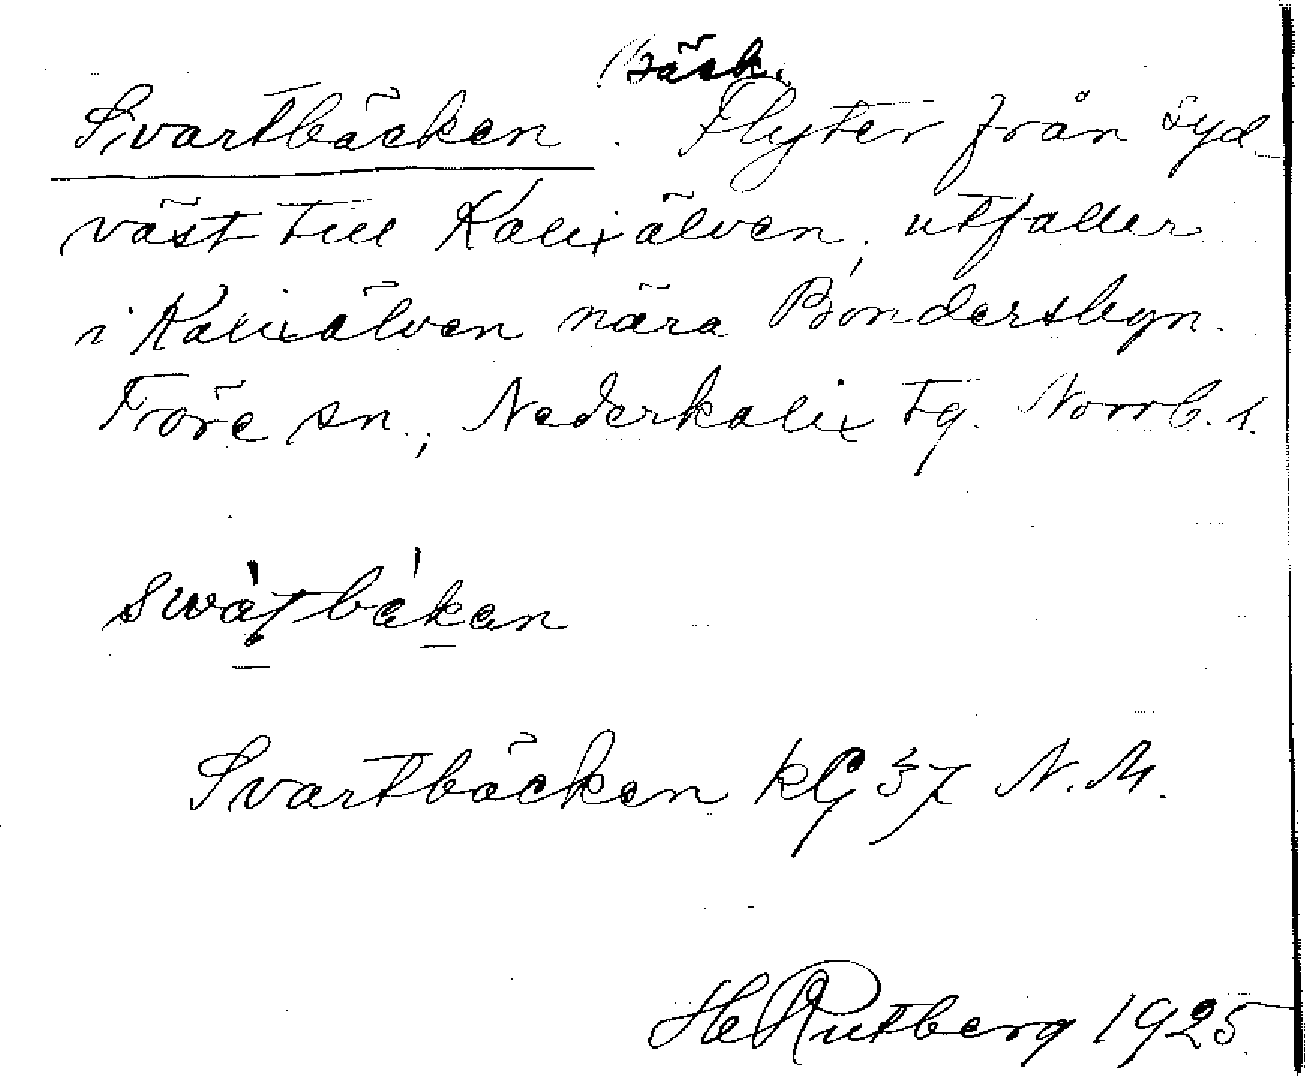 bäck.
Svartbäcken. Flyter från syd-
väst till Kalixälven, utfaller
i Kalixälven nära Bondersbyn.
Töre sn., Nederkalix tg. Norrb. l.
Svartbäcken N. M.
H Rutberg 1925